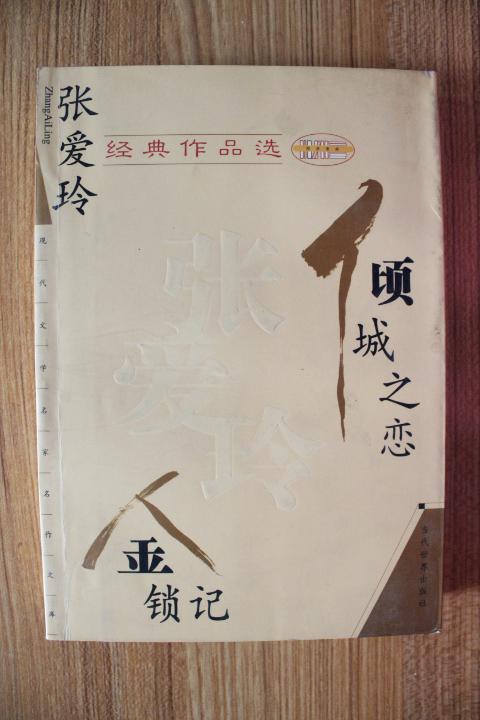 张爱玲
ZhangAiLing
经典作品选
张爱玲
倾城之恋
金锁记
现代文学名家名作文库
当代世界出版社